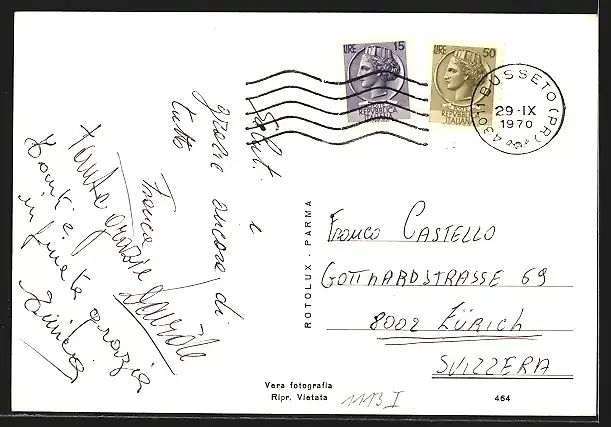 LIRE 15
POSTE
REPVBBLICA
ITALIANA
LIRE 50
POSTE
REPVBBLICA
ITALIANA
43011 BUSSETO (PR)
29-IX
1970
Saluti e
grazie ancora di
tutto
Franca
tante grazie
infinita grazia
ROTOLUX - PARMA
Franco CASTELLO
GOTTHARDSTRASSE 69
8002 ZÜRICH
SVIZZERA
Vera fotografia
Ripr. Vietata
1113 I
464